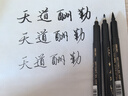 天道酬勤
天道酬勤
天道酬勤